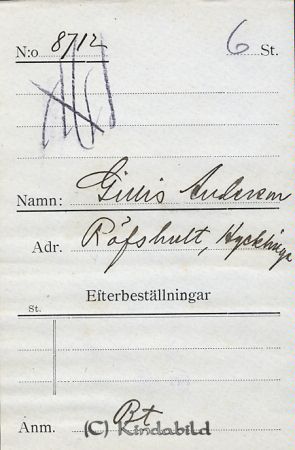 N:o 8712 6 St.
Namn: Gillis Anderson
Adr. Räfshult, Hycklinge
Efterbeställningar
St.
Anm. Bt
(C) Kindabild